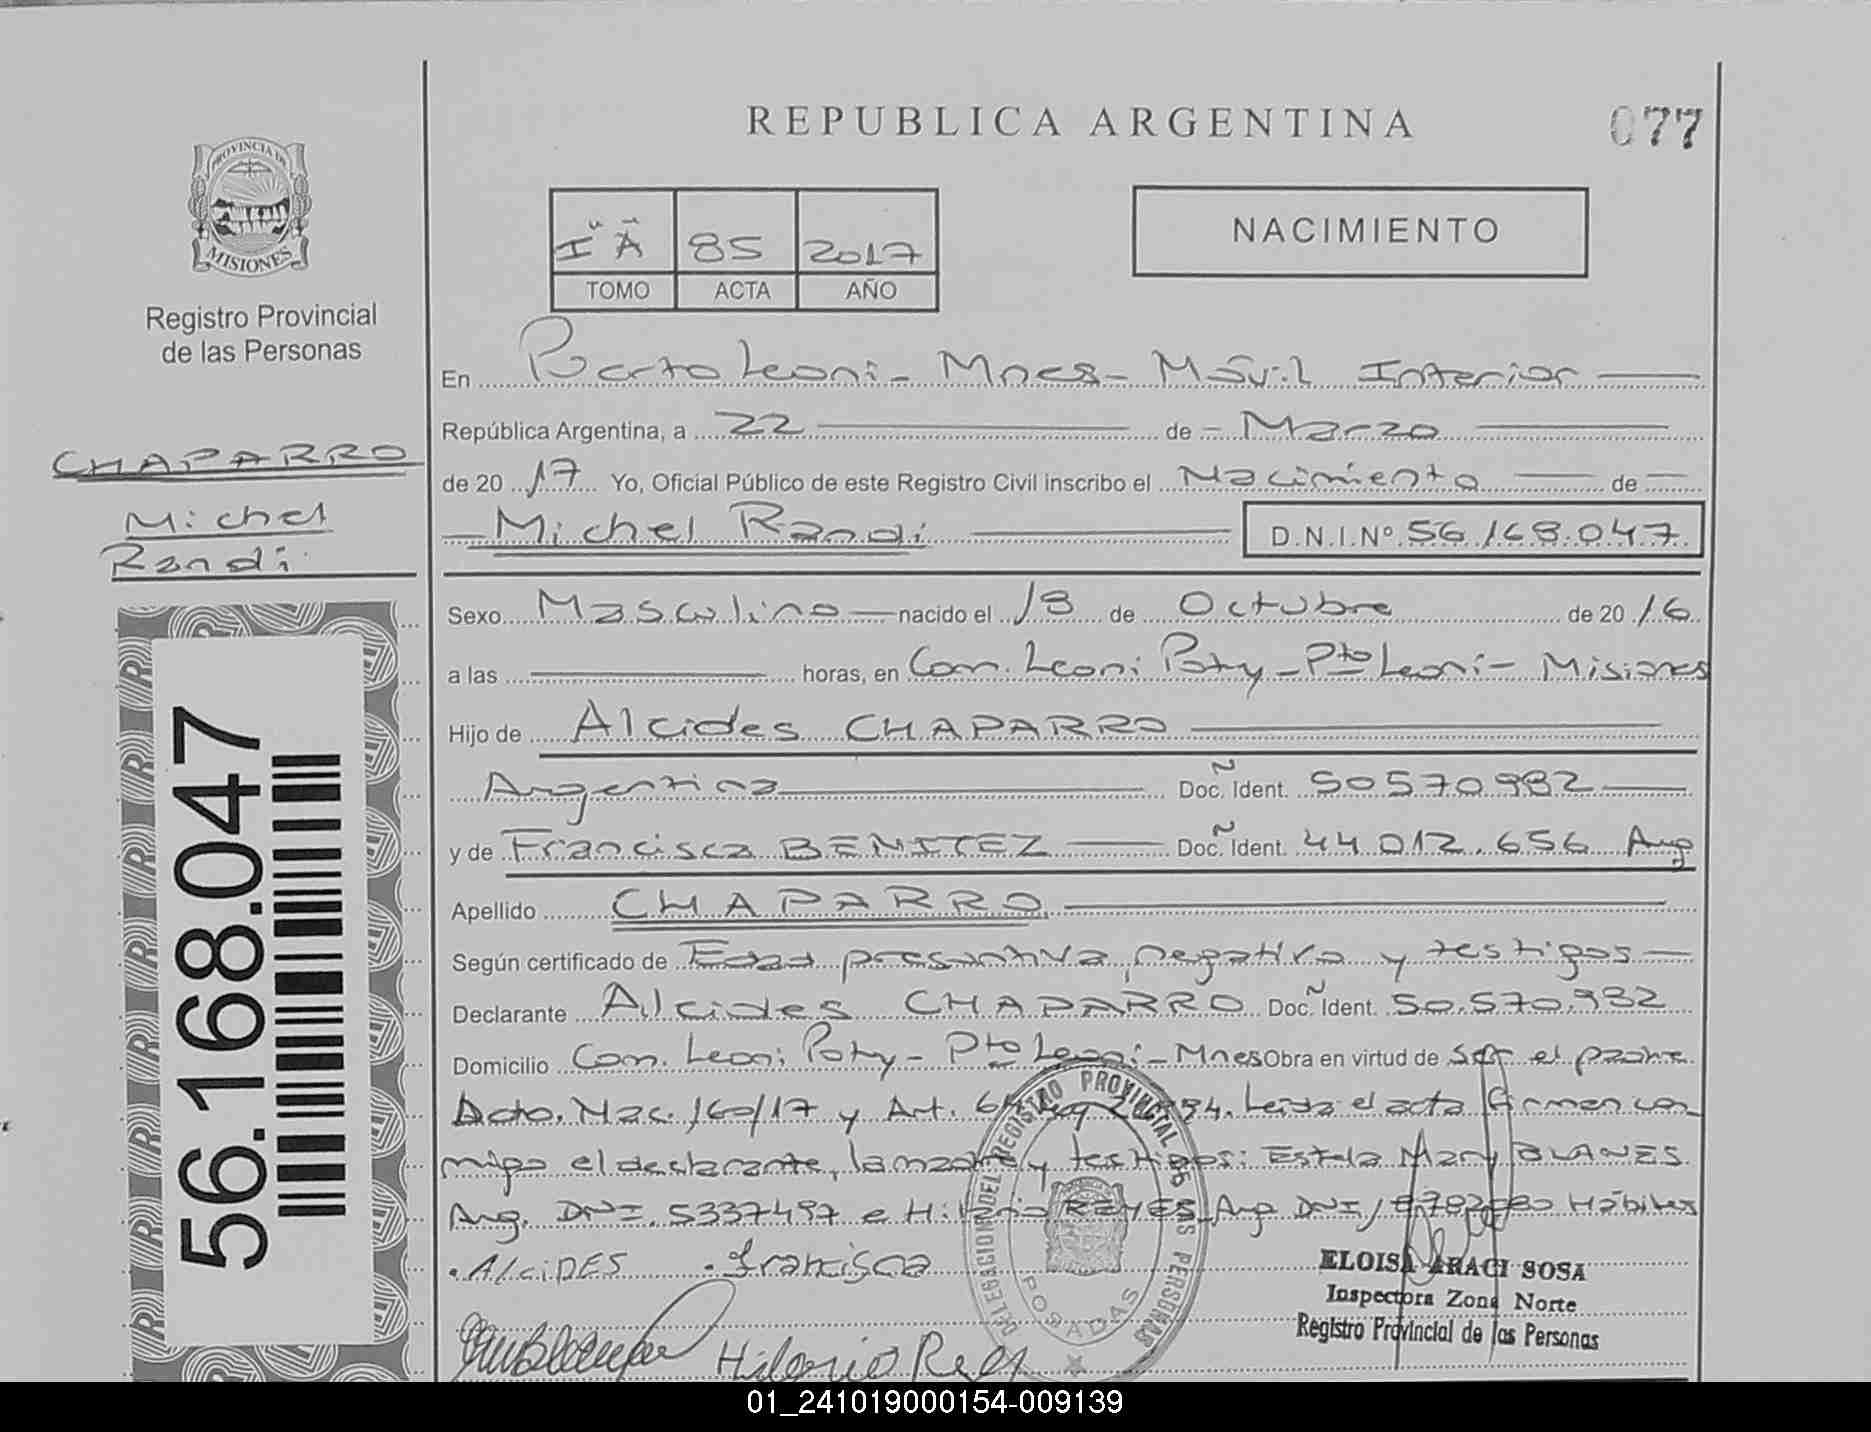 REPUBLICA ARGENTINA
077
PROVINCIA DE
MISIONES
Registro Provincial
de las Personas
CHAPARRO
Michel
Randi
56.168.047
I "A" 85 2017
TOMO ACTA AÑO
NACIMIENTO
En Puerto Leoni - Mnes - Móvil Interior
República Argentina, a 22 de Marzo
de 2017 Yo, Oficial Público de este Registro Civil inscribo el Nacimiento de
Michel Randi D.N.I.Nº 56.168.047
Sexo Masculino nacido el 18 de Octubre de 2016
a las horas, en Com. Leoni Poty - Pto Leoni - Misiones
Hijo de Alcides CHAPARRO
Argentina Doc. Ident. 50570982
y de Francisca BENITEZ Doc. Ident. 44.012.656 Arg
Apellido CHAPARRO
Según certificado de Edad presuntiva, negativa y testigos
Declarante Alcides CHAPARRO Doc. Ident. 50.570.982
Domicilio Com. Leoni Poty - Pto Leoni - Mnes Obra en virtud de ser el padre
Dcto. Nac. 160/17 y Art. Ley Leida el acta firman con
migo el declarante, la madre y testigos: Estela Mary BLANES
Arg. DNI. 5337497 e Hilario REYES Arg DNI Hábiles
ALCIDES francisca
Hilario
DELEGACION DEL REGISTRO PROVINCIAL DE LAS PERSONAS
POSADAS
ELOISA ARACI SOSA
Inspectora Zona Norte
Registro Provincial de las Personas
01_241019000154-009139